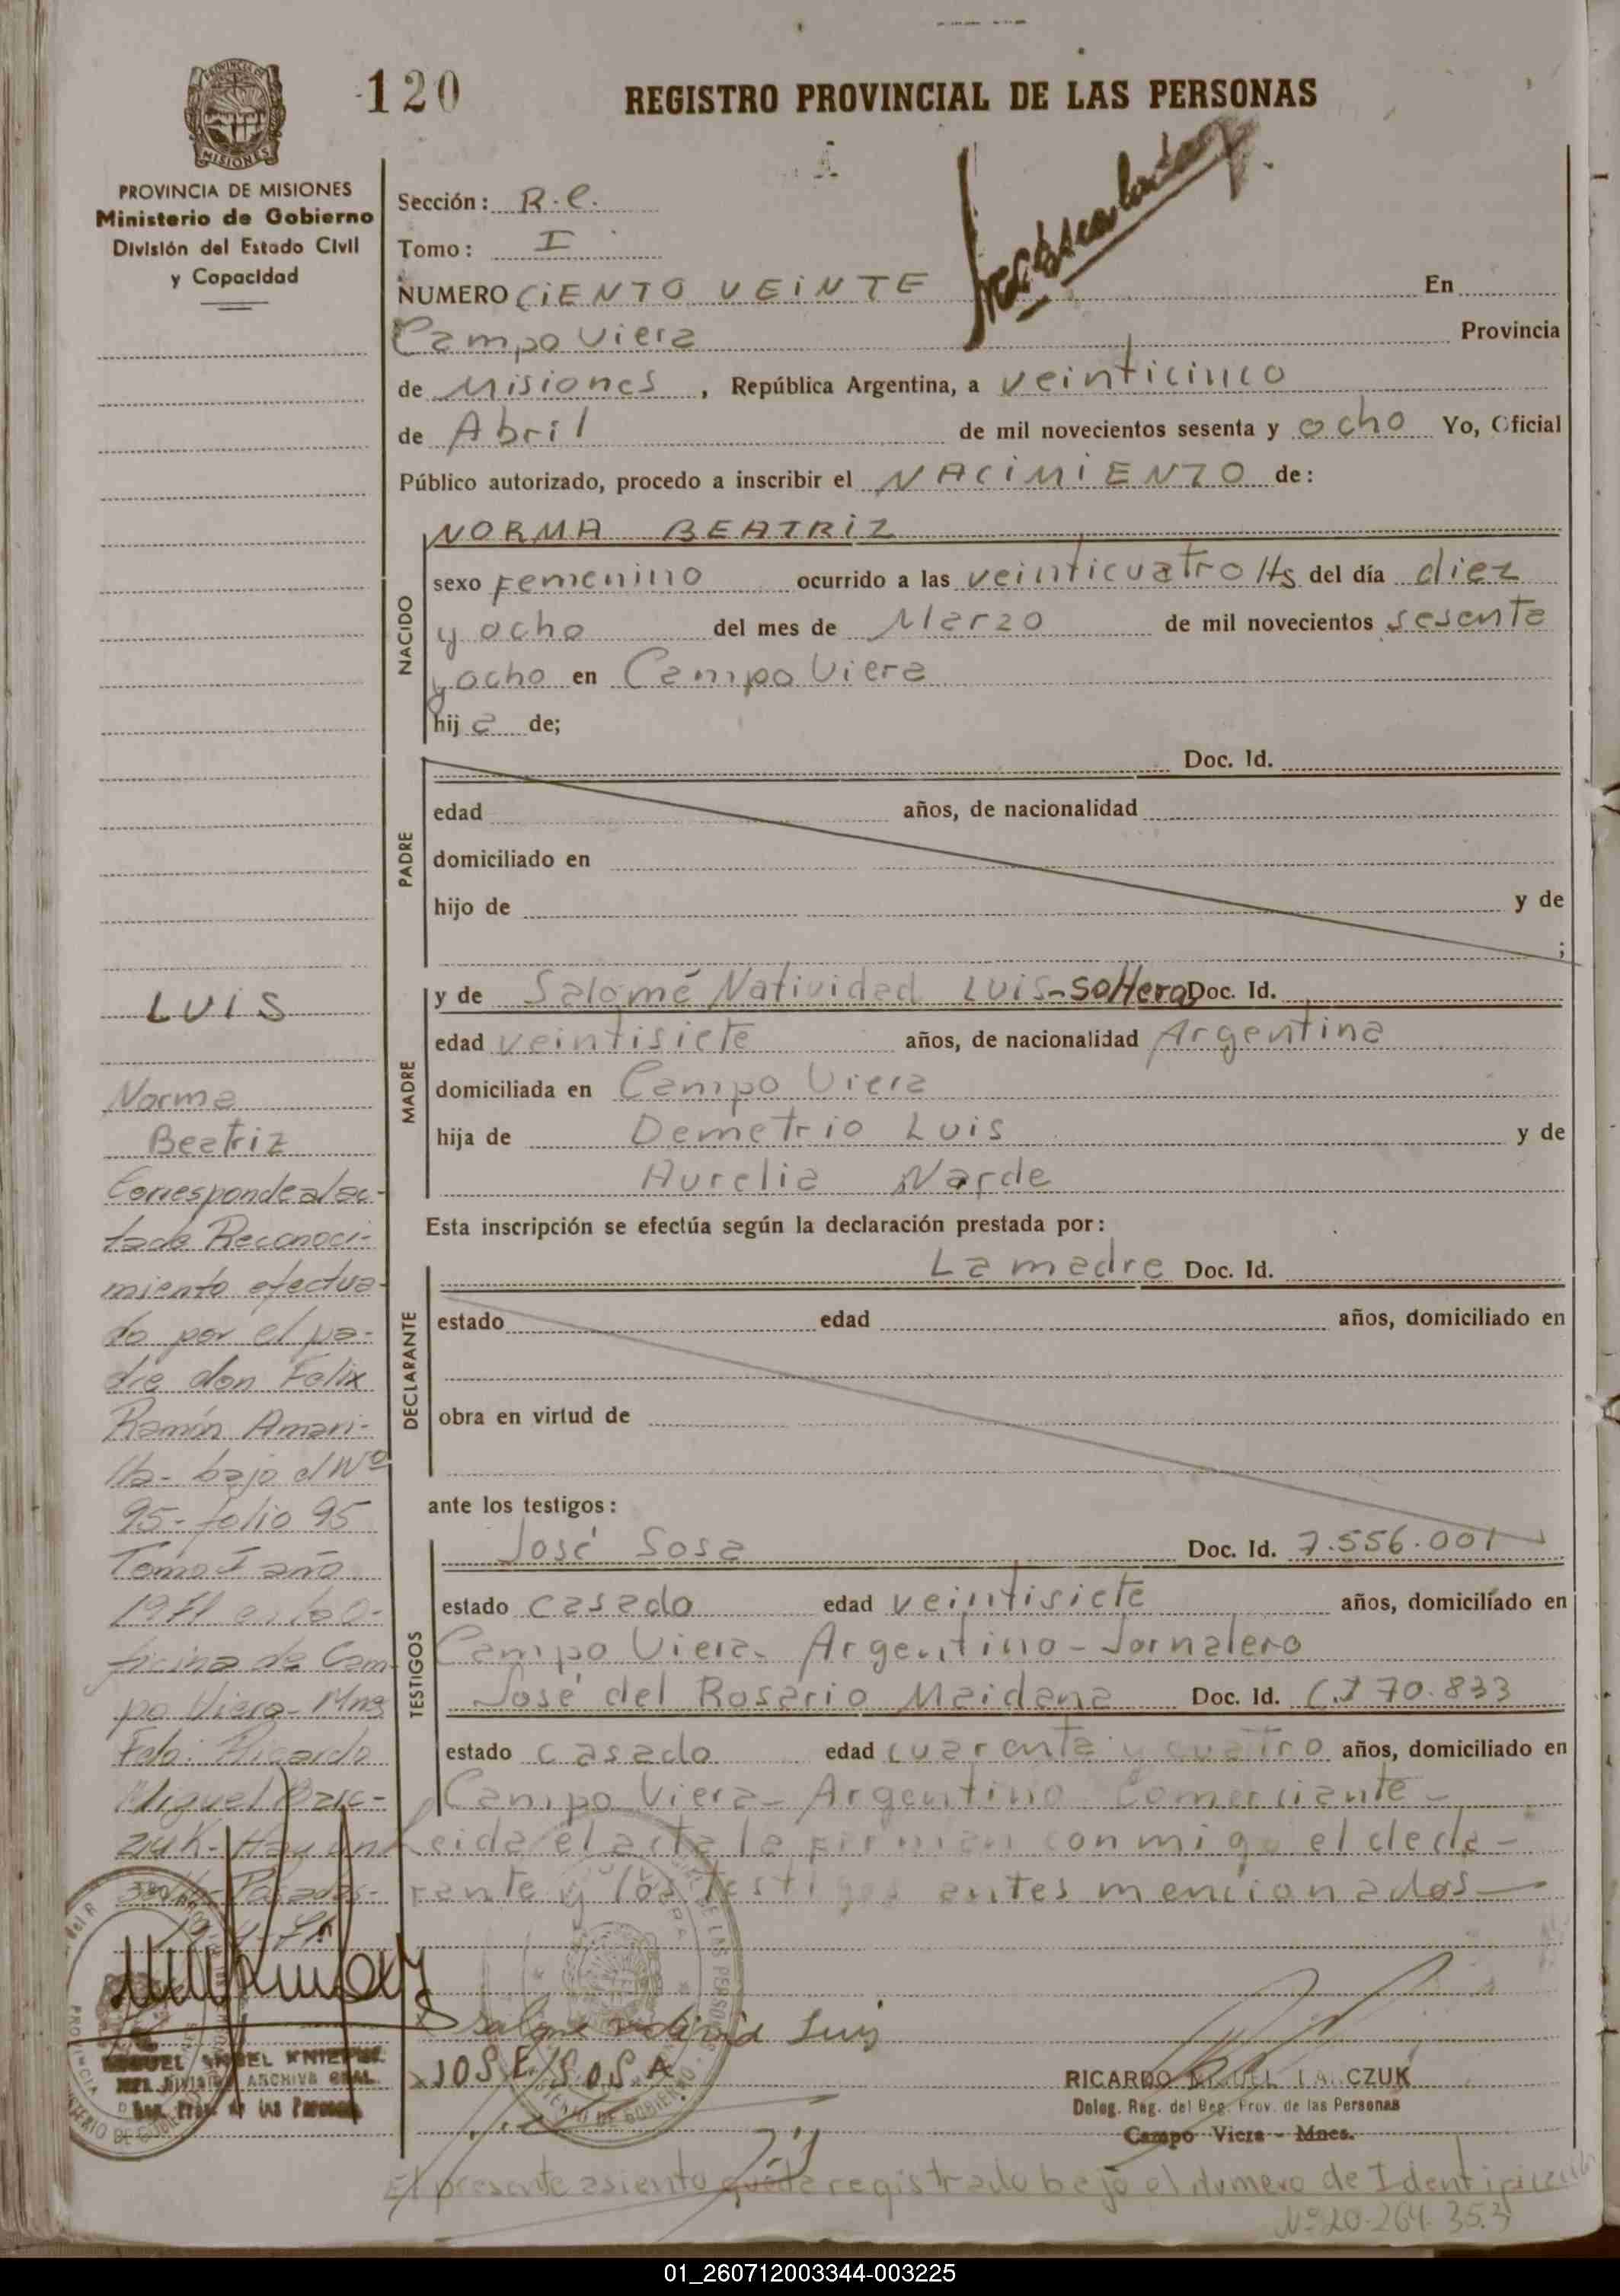 120
REGISTRO PROVINCIAL DE LAS PERSONAS
MISIONES
PROVINCIA DE MISIONES
Ministerio de Gobierno
División del Estado Civil
y Capacidad
Sección: R.C.
Tomo: I
NUMERO CIENTO VEINTE En
Campo Viera Provincia
de Misiones, República Argentina, a veinticinco
de Abril de mil novecientos sesenta y ocho Yo, Oficial
Público autorizado, procedo a inscribir el NACIMIENTO de:
NACIDO
NORMA BEATRIZ
sexo Femenino ocurrido a las veinticuatro Hs del día diez
y ocho del mes de Marzo de mil novecientos sesenta
y ocho en Campo Viera
hij a de;
PADRE
Doc. Id.
edad años, de nacionalidad
domiciliado en
hijo de y de
;
MADRE
y de Salomé Natividad Luis-soltera Doc. Id.
edad veintisiete años, de nacionalidad Argentina
domiciliada en Campo Viera
hija de Demetrio Luis y de
Aurelia Narde
Esta inscripción se efectúa según la declaración prestada por:
DECLARANTE
La madre Doc. Id.
estado edad años, domiciliado en
obra en virtud de
ante los testigos:
TESTIGOS
José Sosa Doc. Id. 7.556.001
estado casado edad veintisiete años, domiciliado en
Campo Viera- Argentino-Jornalero
José del Rosario Maidana Doc. Id. C.I 70.833
estado casado edad cuarenta y cuatro años, domiciliado en
Campo Viera- Argentino Comerciante-
Leida el acta la firman conmigo el decla-
rante y los testigos antes mencionados
Salome natividad Luis
JOSE SOSA
RICARDO MIGUEL CZUK
Deleg. Reg. del Reg. Prov. de las Personas
Campo Viera - Mnes.
El presente asiento queda registrado bajo el numero de Identificación
Nº 20.264.353
LUIS
Norma
Beatriz
Corresponde al ac-
ta de Reconoci-
miento efectua-
do por el pa-
dre don Felix
Ramón Amari-
lla- bajo el Nº
95- folio 95
Tomo I año
1971 en la O-
ficina de Cam-
po Viera- Mns
Fdo: Ricardo
Miguel
zuk- Hay un
sello- Posadas-
01_260712003344-003225